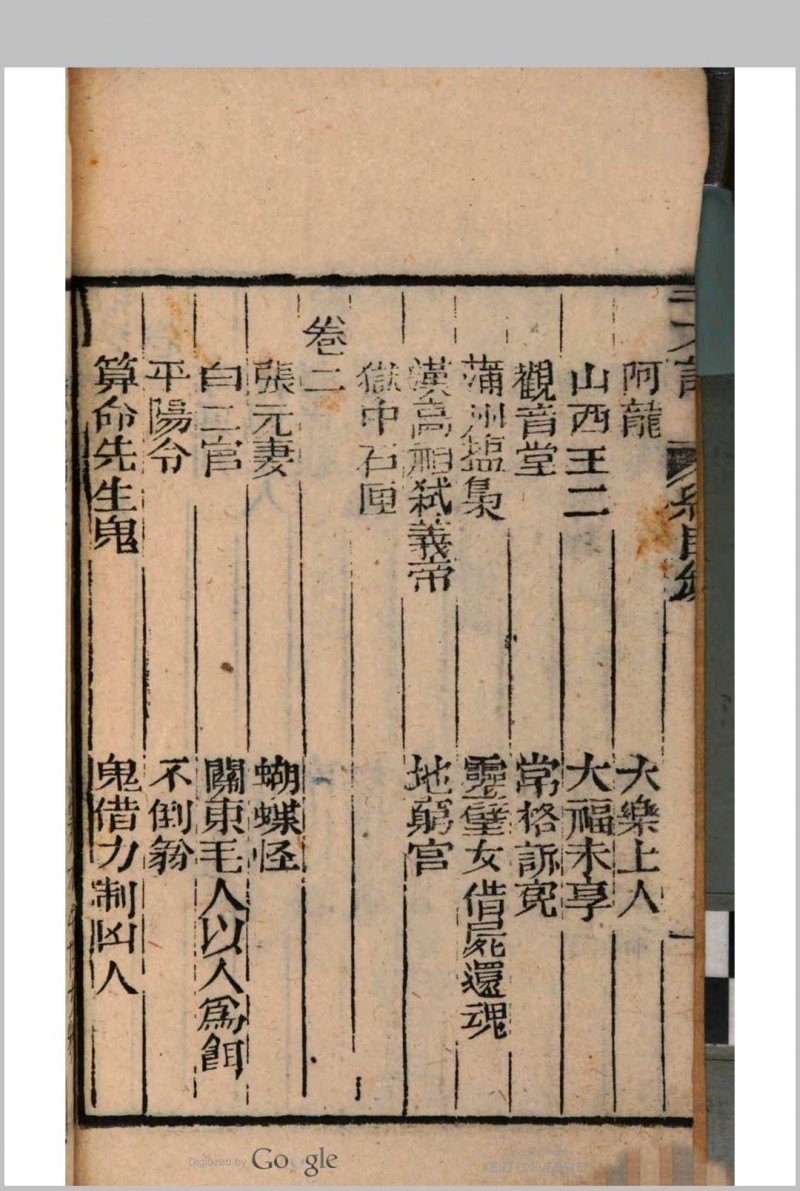 阿龍　大樂上人
山西王二　大福未享
觀音堂　常格訴寃
蒲州鹽梟　靈璧女借屍還魂
漢高祖弒義帝　地窮宮
獄中石匣
卷二
張元妻　蝴蝶怪
白二官　關東毛人以人爲餌
平陽令　不倒翁
算命先生鬼　鬼借力制凶人
Digitized by Google
KEIO UNIVERSITY